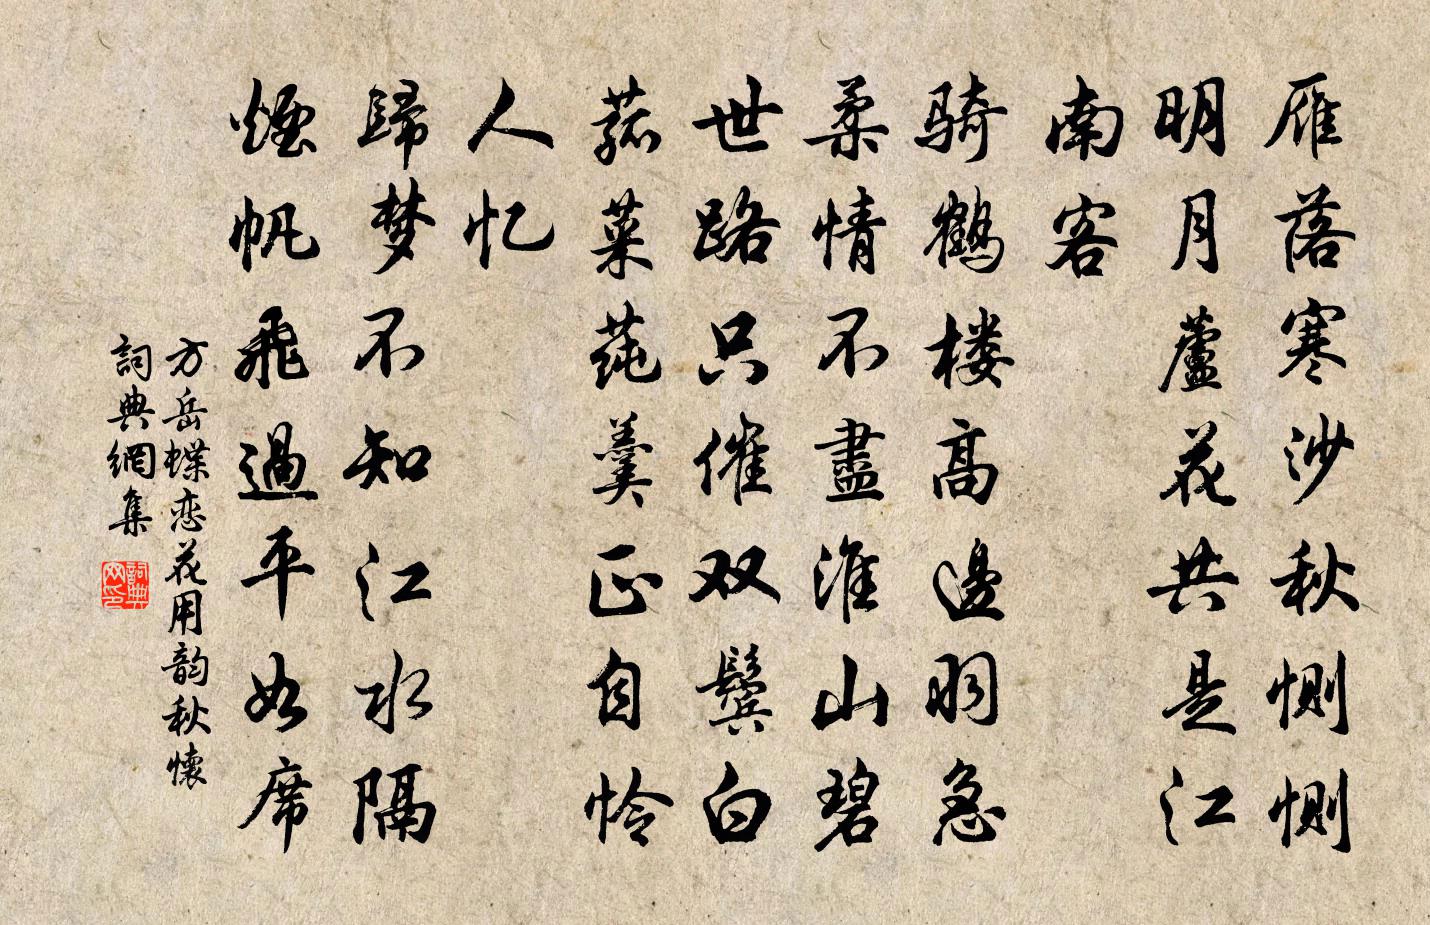 雁落寒沙秋恻恻
明月蘆花共是江
南客
骑鹤楼高邉羽急
柔情不盡淮山碧
世路只催双鬓白
菰菜莼羹正自怜
人忆
歸梦不知江水隔
煙帆飛過平如席
方岳蝶恋花用韵秋懷
詞典網集
詞典网印